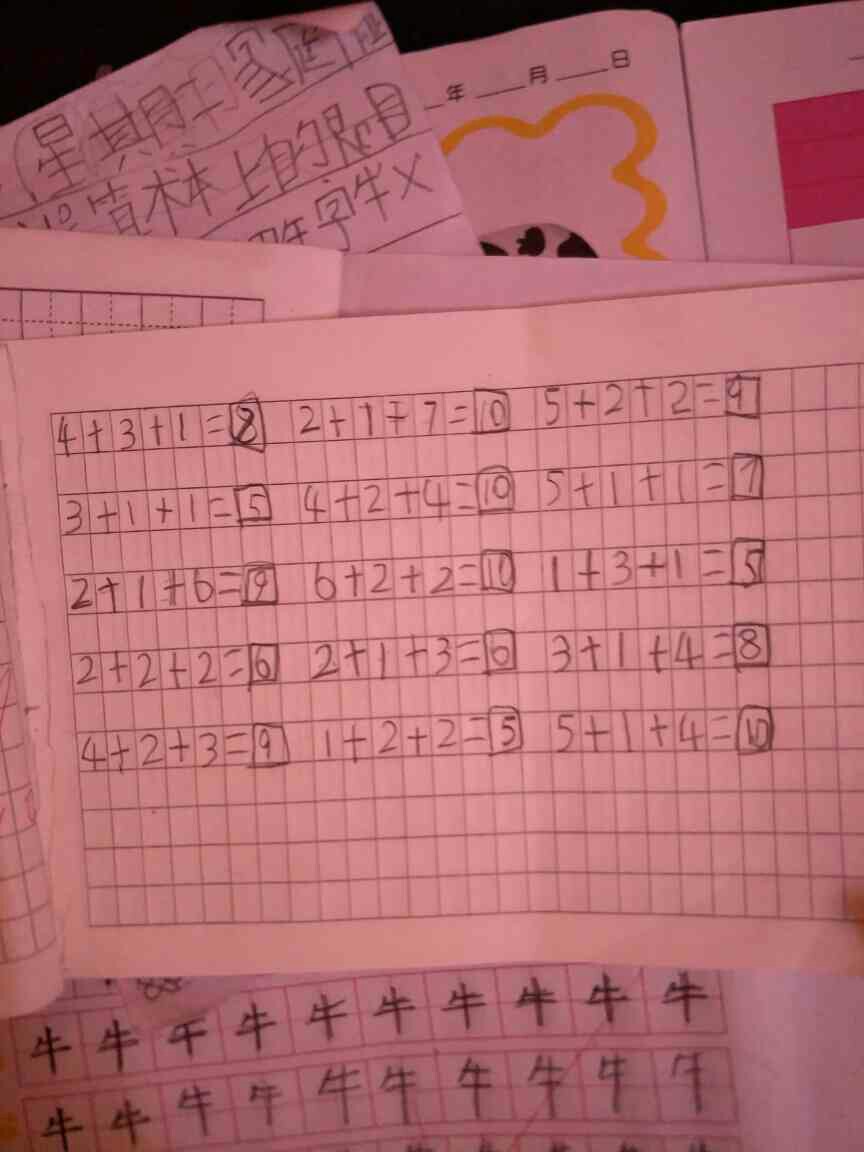 星期五家庭
算术本上的题目
字牛
年 月 日
4+3+1=8 2+1+7=10 5+2+2=9
3+1+1=5 4+2+4=10 5+1+1=7
2+1+6=9 6+2+2=10 1+3+1=5
2+2+2=6 2+1+3=6 3+1+4=8
4+2+3=9 1+2+2=5 5+1+4=10
牛 牛 牛 牛 牛 牛 牛 牛 牛 牛
牛 牛 牛 牛 牛 牛 牛 牛 牛 牛